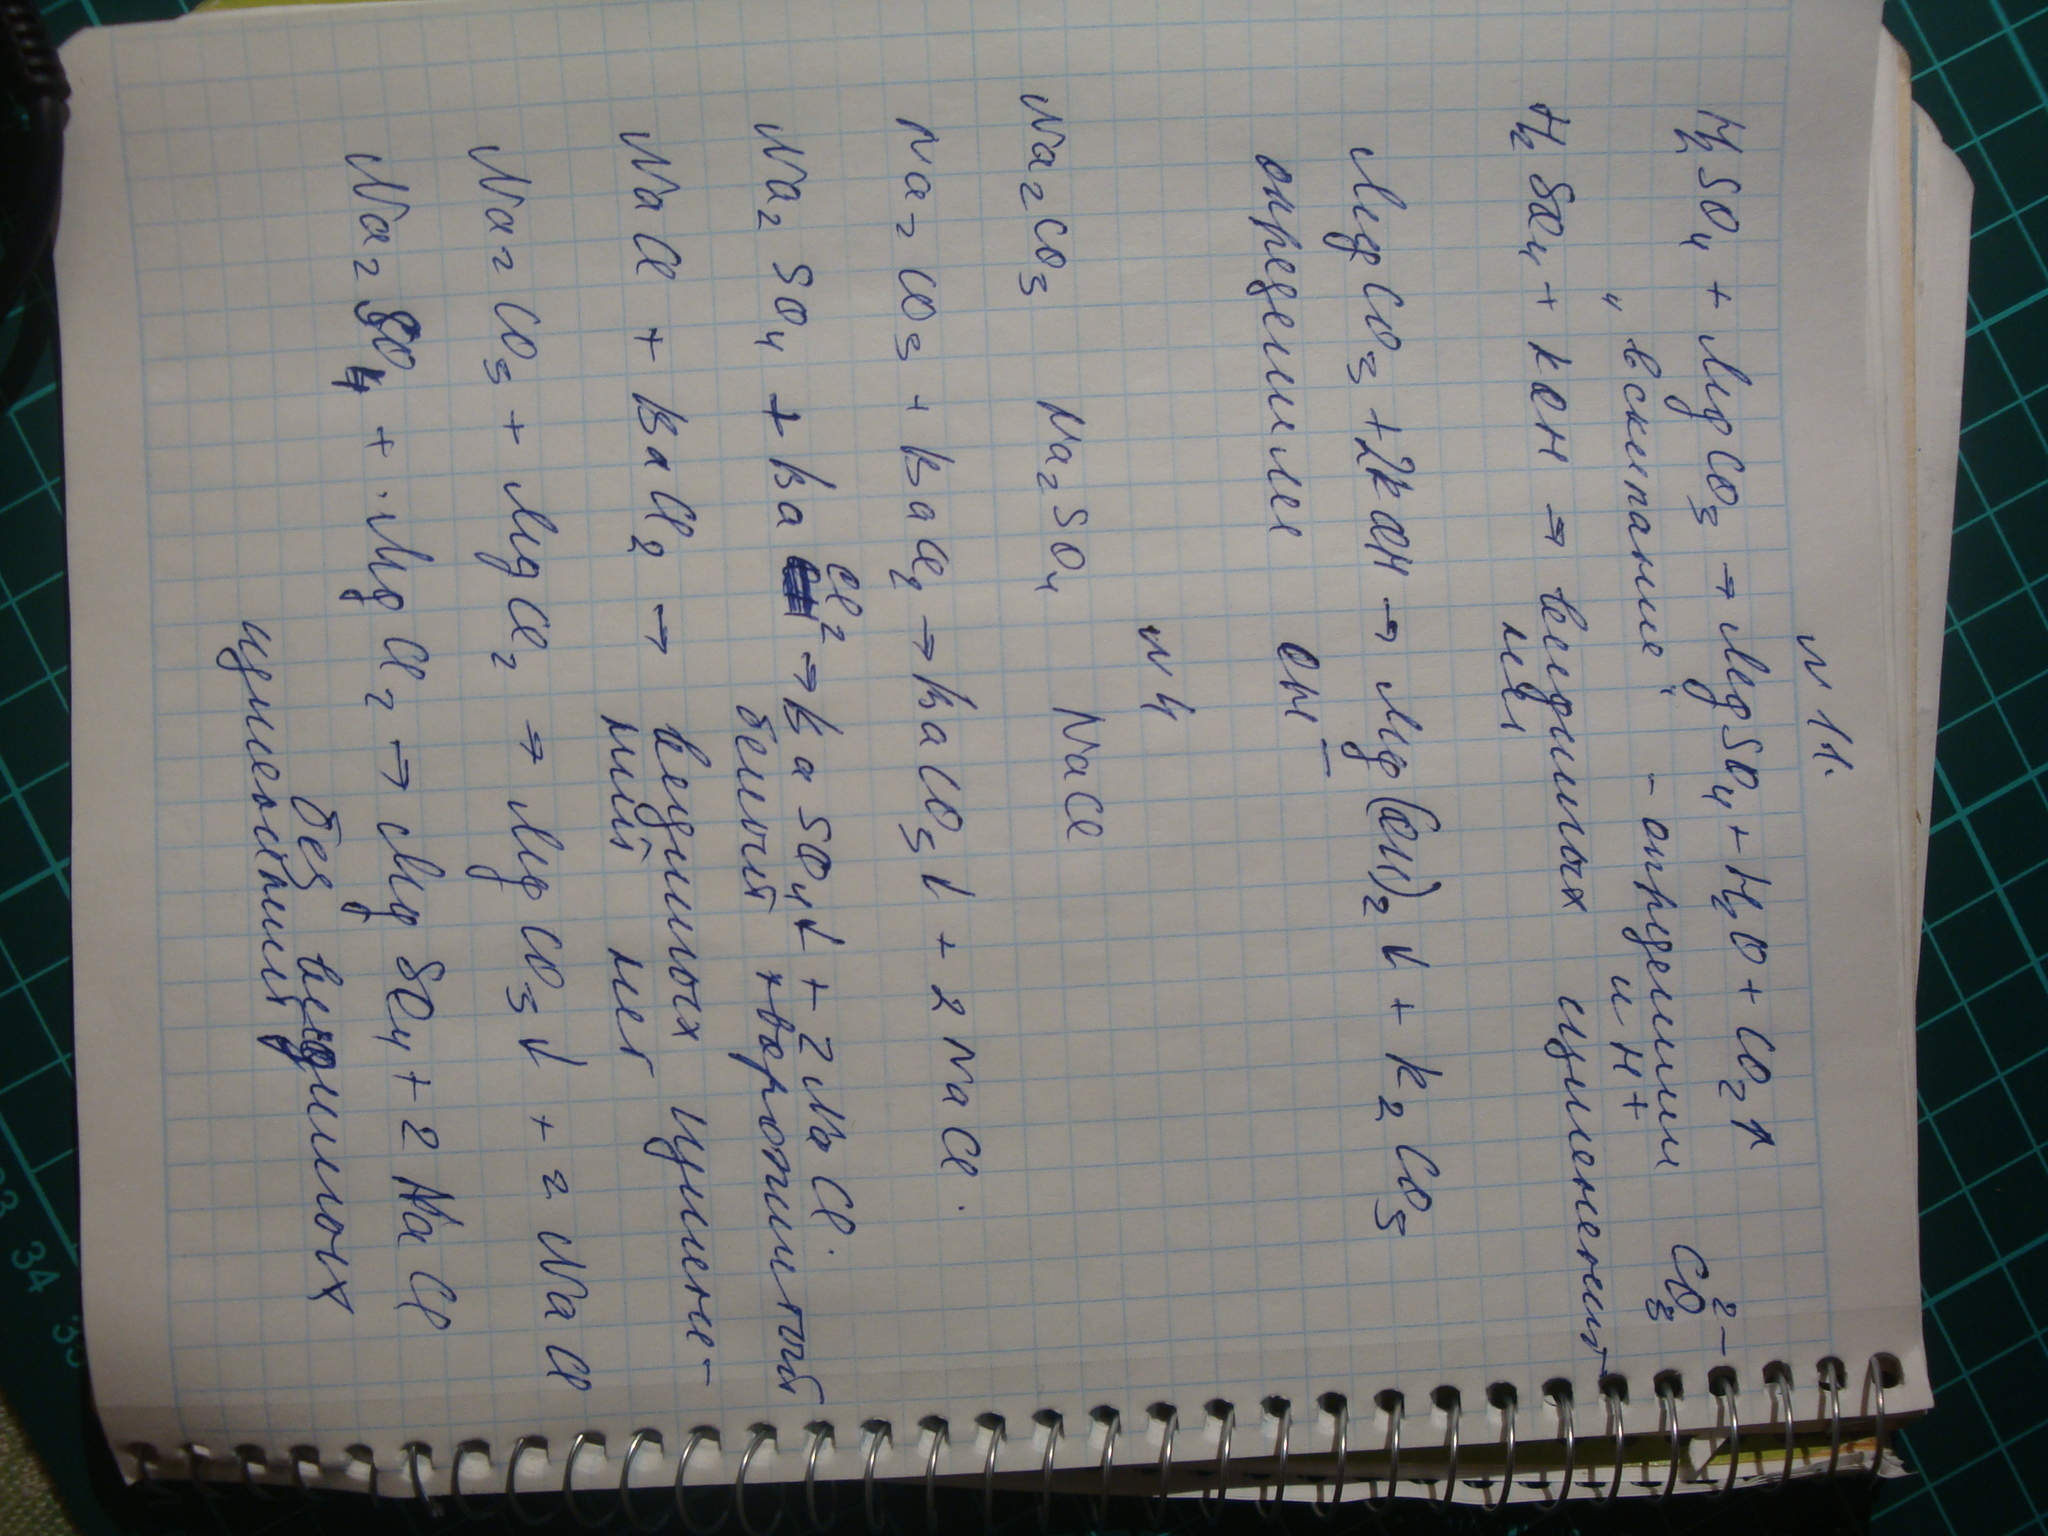 N 11.
H₂SO₄ + MgCO₃ → MgSO₄ + H₂O + CO₂↑
"вскипание" - определили CO₃²⁻
и H⁺
H₂SO₄ + KOH → видимых изменений
нет
MgCO₃ + 2KOH → Mg(OH)₂↓ + K₂CO₃
определили OH⁻
N 4
Na₂CO₃ Na₂SO₄ NaCl
Na₂CO₃ + BaCl₂ → BaCO₃↓ + 2NaCl.
Na₂SO₄ + BaCl₂ → BaSO₄↓ + 2NaCl.
белый творожистый
NaCl + BaCl₂ → видимых измене-
ний нет
Na₂CO₃ + MgCl₂ → MgCO₃↓ + 2NaCl
Na₂SO₄ + MgCl₂ → MgSO₄ + 2NaCl
без видимых
изменений